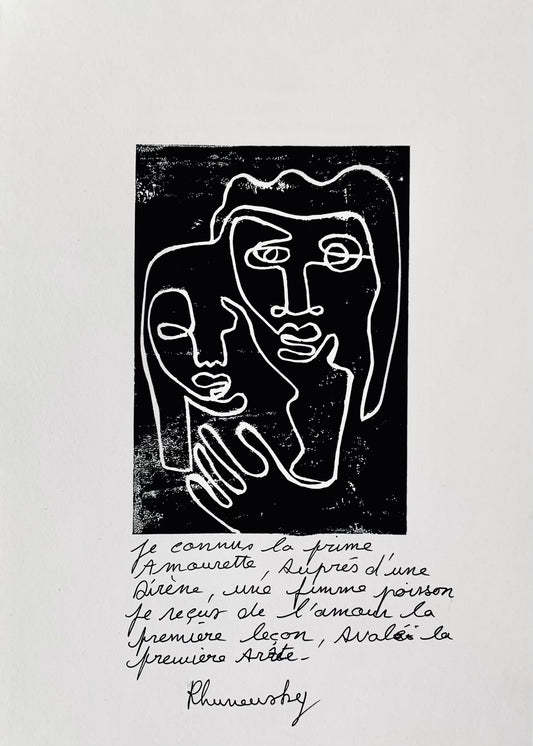 je connus la prime
Amourette, Auprés d'une
Sirène, une fimme poisson
je reçus de l'amour la
première leçon, Avaléi la
première Arête.